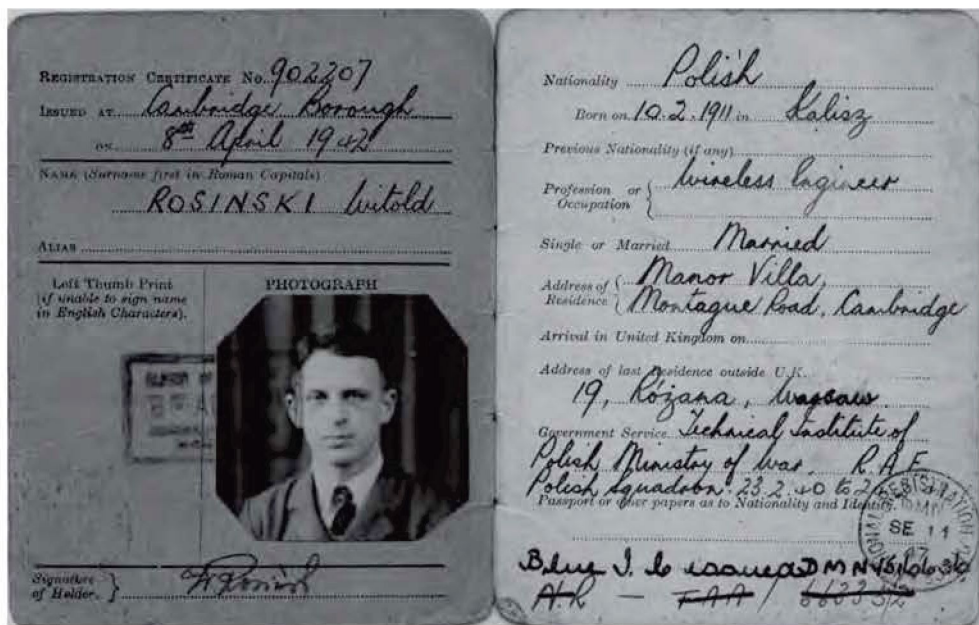 REGISTRATION CERTIFICATE No. 902207
ISSUED AT Cambridge Borough
ON 8th April 1942
NAME (Surname first in Roman Capitals)
ROSINSKI Witold
ALIAS
Left Thumb Print
(if unable to sign name
in English Characters).
PHOTOGRAPH
Signature
of Holder.
Nationality Polish
Born on 10.2.1911 in Kalisz
Previous Nationality (if any)
Profession or
Occupation
Wireless Engineer
Single or Married Married
Address of
Residence
Manor Villa,
Montague Road, Cambridge
Arrival in United Kingdom on
Address of last Residence outside U.K.
19, Rózana, Warsaw
Government Service Technical Institute of
Polish Ministry of War. R.A.F.
Polish squadron. 23.2.40 to
Passport or other papers as to Nationality and Identity.
NATIONAL REGISTRATION
SE 11
Blue I. C issued DMN